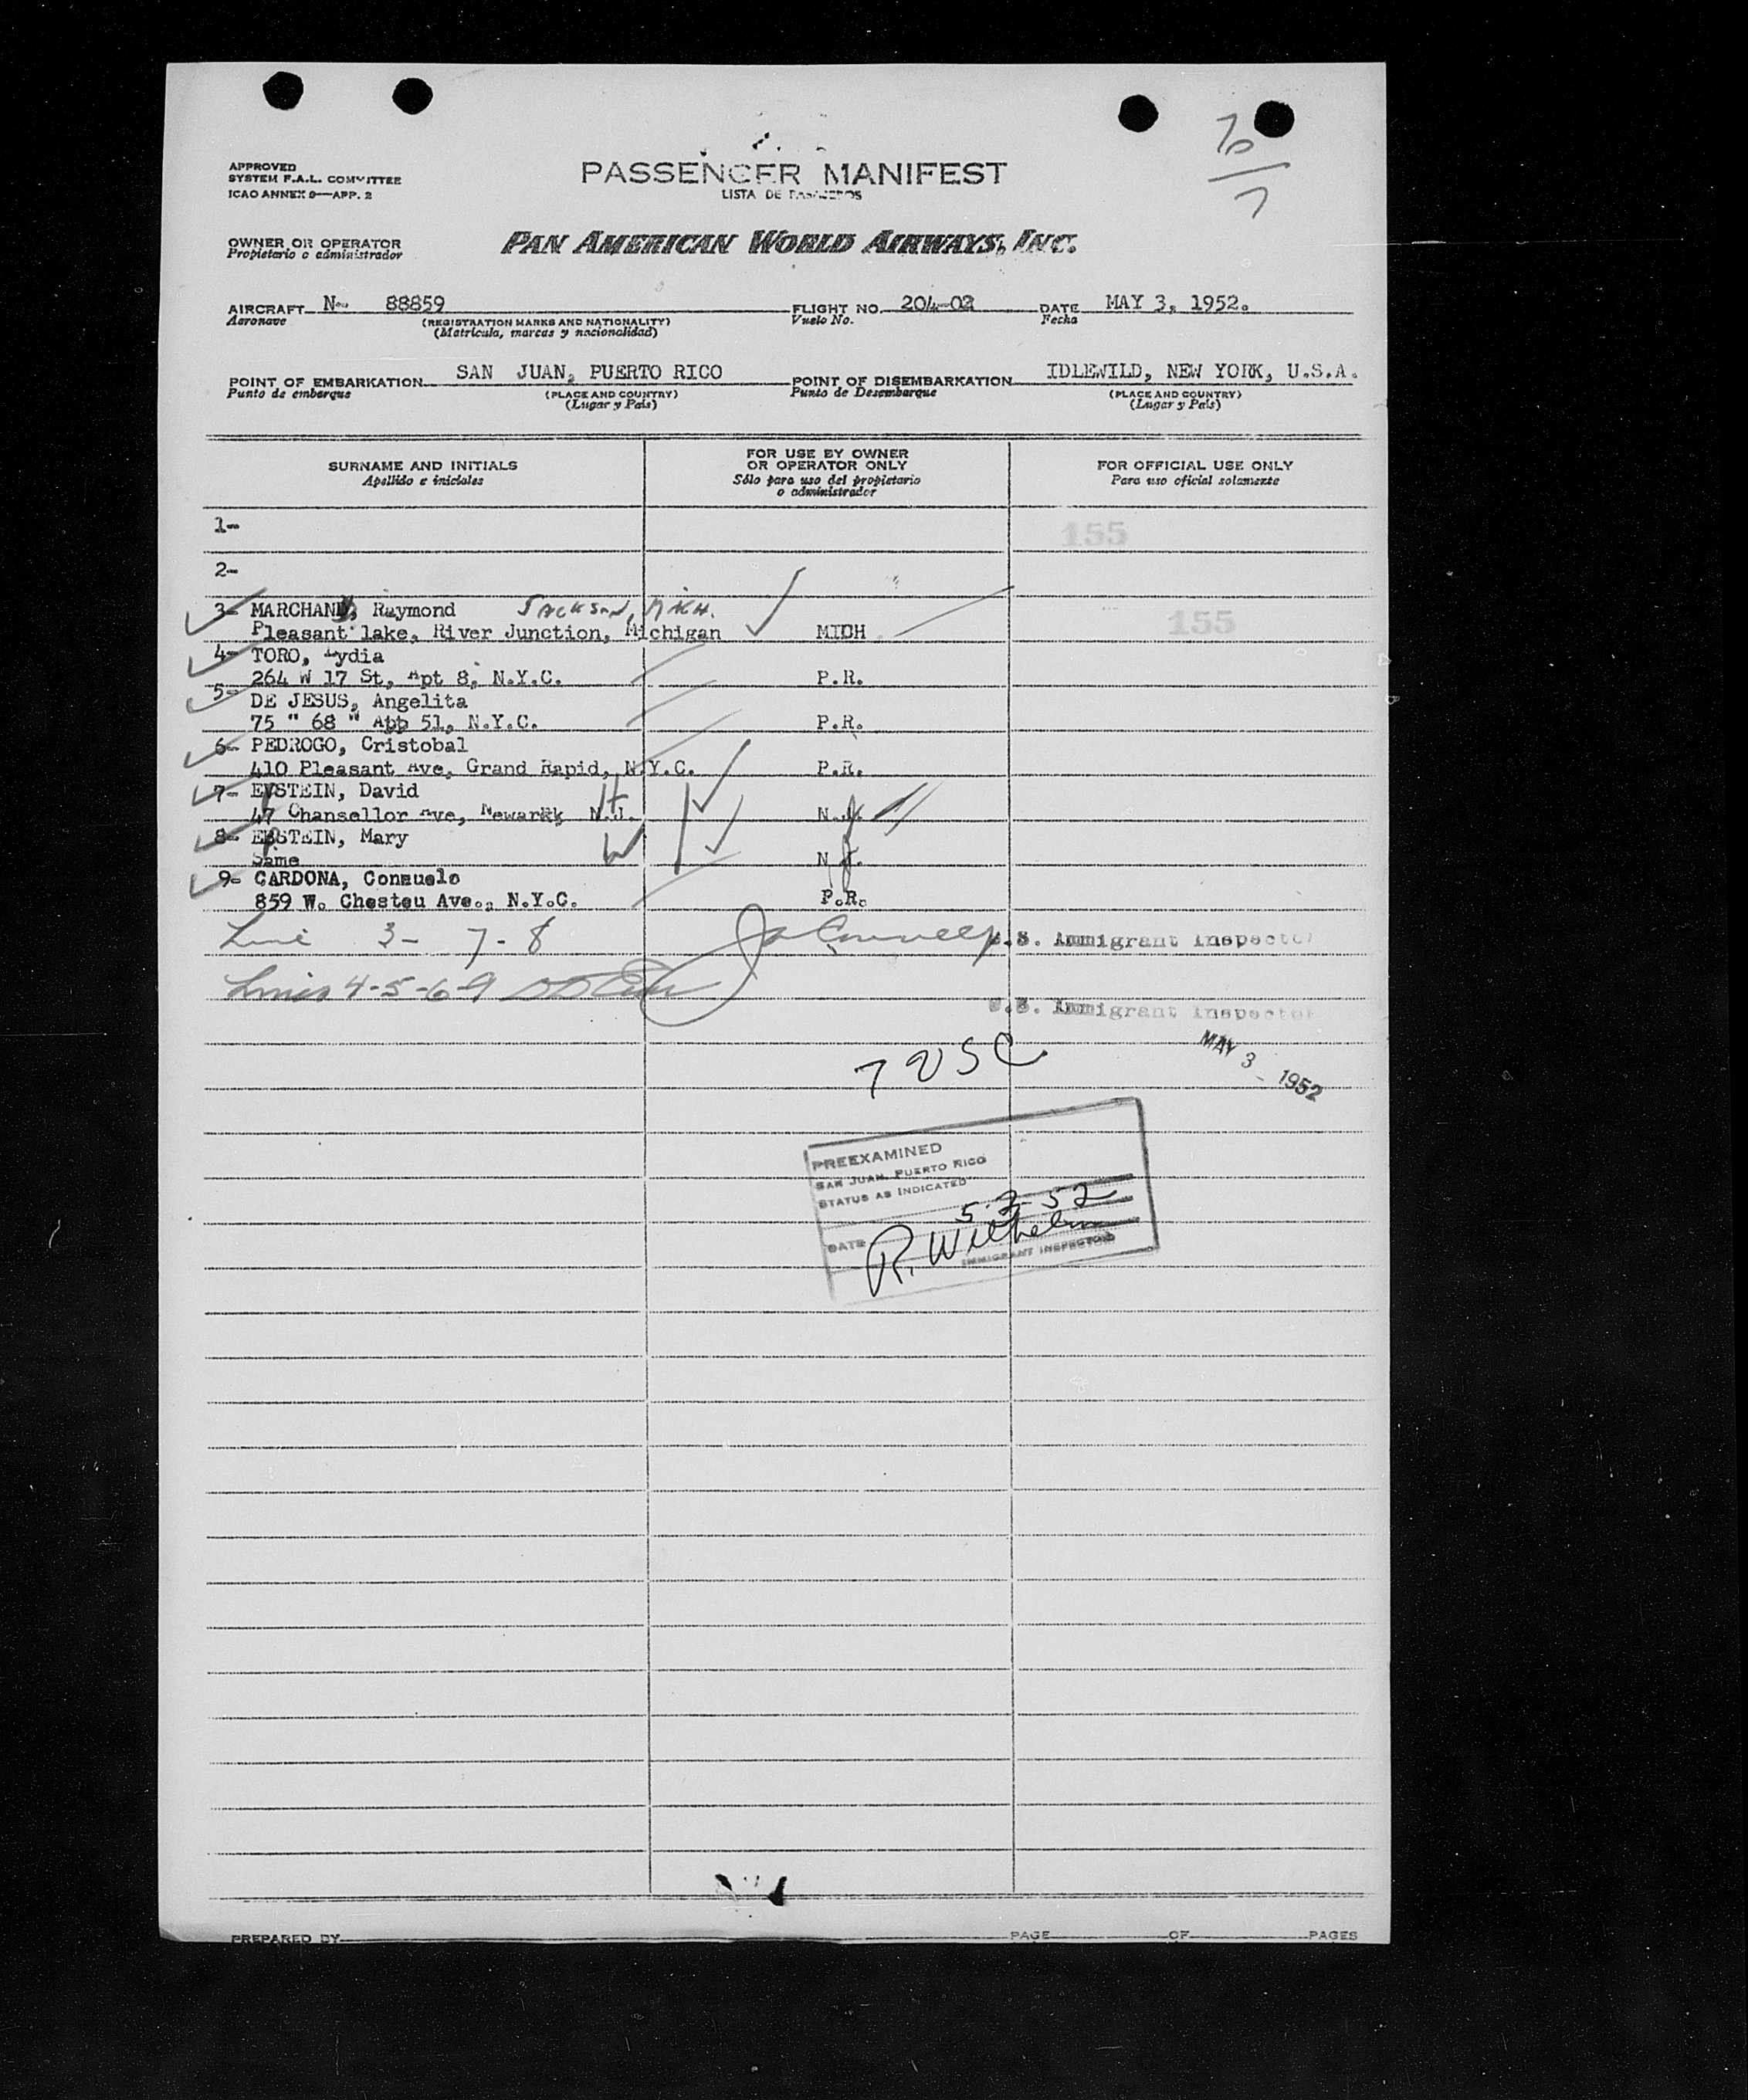 APPROVED
SYSTEM F.A.L. COMMITTEE
ICAO ANNEX 9—APP. 2
PASSENGER MANIFEST
LISTA DE PASAJEROS
70
7
OWNER OR OPERATOR
Propietario o administrador
PAN AMERICAN WORLD AIRWAYS, INC.
AIRCRAFT N- 88859
Aeronave
(REGISTRATION MARKS AND NATIONALITY)
(Matrícula, marcas y nacionalidad)
FLIGHT NO. 204-02
Vuelo No.
DATE MAY 3, 1952.
Fecha
POINT OF EMBARKATION SAN JUAN, PUERTO RICO
Punto de embarque
(PLACE AND COUNTRY)
(Lugar y País)
POINT OF DISEMBARKATION IDLEWILD, NEW YORK, U.S.A.
Punto de Desembarque
(PLACE AND COUNTRY)
(Lugar y País)
SURNAME AND INITIALS
Apellido e iniciales
FOR USE BY OWNER
OR OPERATOR ONLY
Sólo para uso del propietario
o administrador
FOR OFFICIAL USE ONLY
Para uso oficial solamente
1-
155
2-
3- MARCHAND, Raymond JACKSON, MICH.
Pleasant lake, River Junction, Michigan MICH
155
4- TORO, Lydia
264 W 17 St, Apt 8, N.Y.C. P.R.
5- DE JESUS, Angelita
75 " 68 " App 51, N.Y.C. P.R.
6- PEDROGO, Cristobal
410 Pleasant Ave, Grand Rapid, N.Y.C. P.R.
7- EPSTEIN, David
47 Chansellor Ave, Newark, N.J. N.J.
8- EPSTEIN, Mary
Same N.J.
9- CARDONA, Consuelo
859 W. Chesteu Ave., N.Y.C. P.R.
Line 3- 7-8
U.S. Immigrant Inspector
Lines 4-5-6-9
U.S. Immigrant Inspector
MAY 3 - 1952
7 USC
PREEXAMINED
SAN JUAN, PUERTO RICO
STATUS AS INDICATED
DATE 5-3-52
R. Wilhelm
IMMIGRANT INSPECTOR
PREPARED BY
PAGE OF PAGES